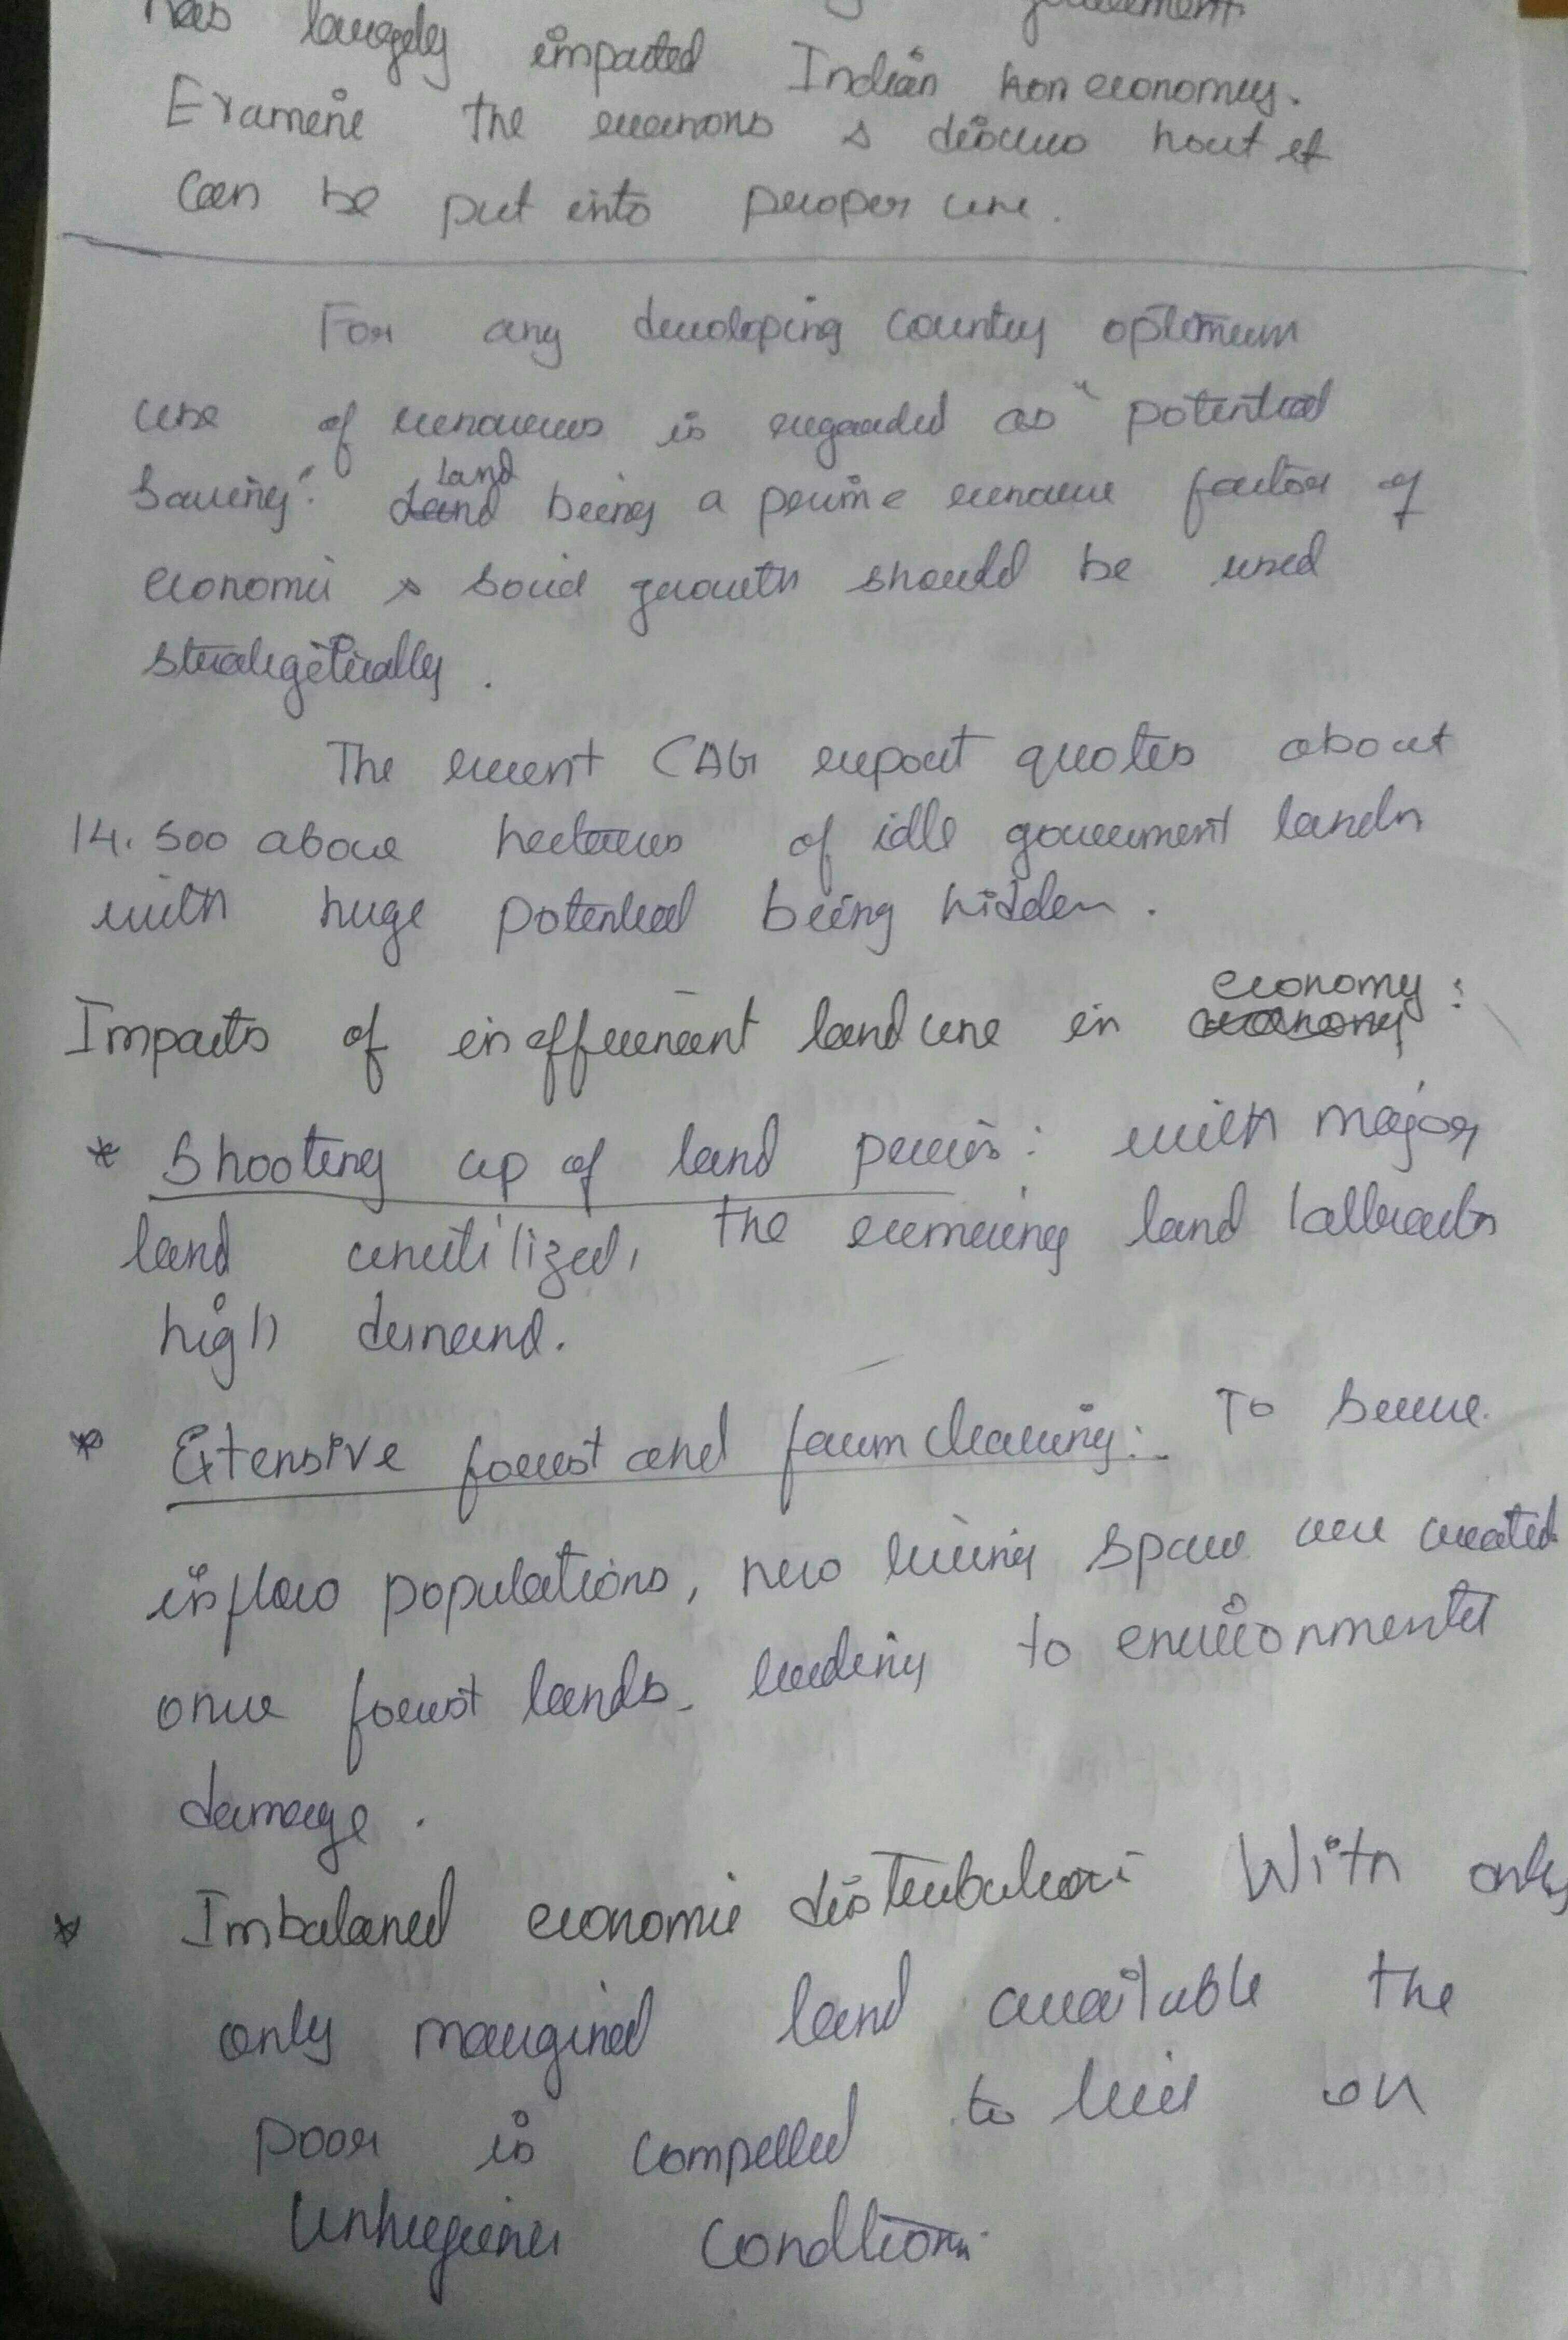 has largely impacted Indian economy.
Examine the reasons & discuss how it
can be put into proper use.
For any developing country optimum
use of resources is regarded as "potential
saving". Land being a prime resource factor of
economic & social growth should be used
strategetically.
The recent CAG report quotes about
14.500 above hectares of idle government lands
with huge potential being hidden.
Impacts of inefficient land use in economy:
* Shooting up of land prices: with major
land unutilized, the remaining land attracts
high demand.
* Extensive forest and farm clearing: To serve
inflow populations, new living space are created
once forest lands leading to environmental
damage.
* Imbalanced economic distribution: With only
only marginal land available the
poor is compelled to live on
unhygienic condition